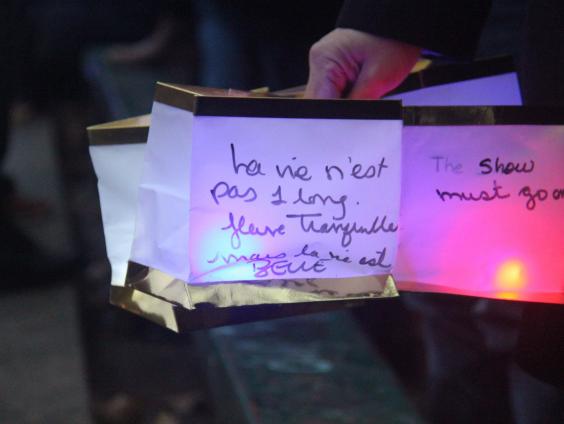 La vie n'est
pas 1 long.
fleuve Tranquille
mais la vie est
BELLE
The Show
must go on